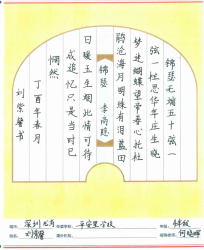 锦瑟无端五十弦一
弦一柱思华年庄生晓
梦迷蝴蝶望帝春心托杜
鹃沧海月明珠有泪蓝田
锦瑟 李商隐
日暖玉生烟此情可待
成追忆只是当时已
惘然
丁酉年春月
深圳 平安里学校